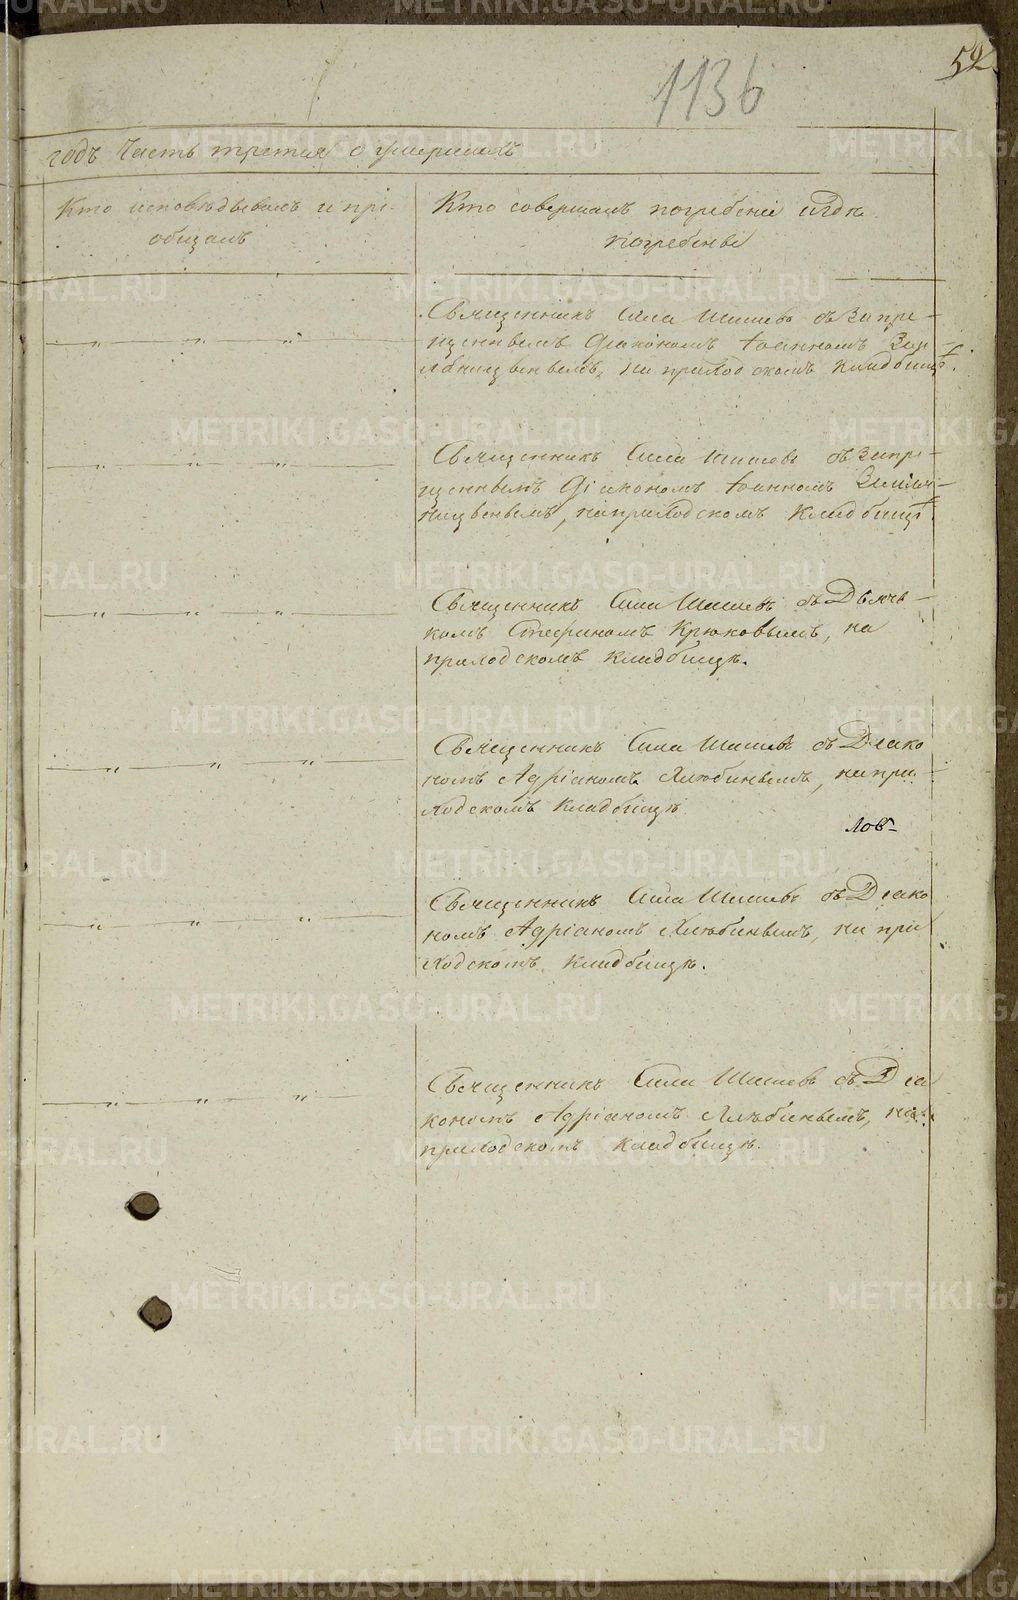 1136
59
годъ Часть третия о умершихъ
Кто исповѣдывалъ и прі-
общалъ
Кто совершалъ погребеніе и гдѣ
погребены
Священникъ Сила Шишевъ съ Запре-
щеннымъ Діакономъ Іоанномъ
на приходскомъ кладбищѣ.
Священникъ Сила Шишевъ съ Запре-
щеннымъ Діакономъ Іоанномъ
на приходскомъ кладбищѣ.
Священникъ Сила Шишевъ съ Дьяч-
комъ Стефаномъ Крюковымъ, на
приходскомъ кладбищѣ.
Священникъ Сила Шишевъ съ Диако
номъ Адріаномъ на при
ходскомъ кладбищѣ
Священникъ Сила Шишевъ съ Диако
номъ Адріаномъ на при
ходскомъ кладбищѣ.
Священникъ Сила Шишевъ съ Диа
кономъ Адріаномъ на
приходскомъ кладбищѣ.
METRIKI.GASO-URAL.RU